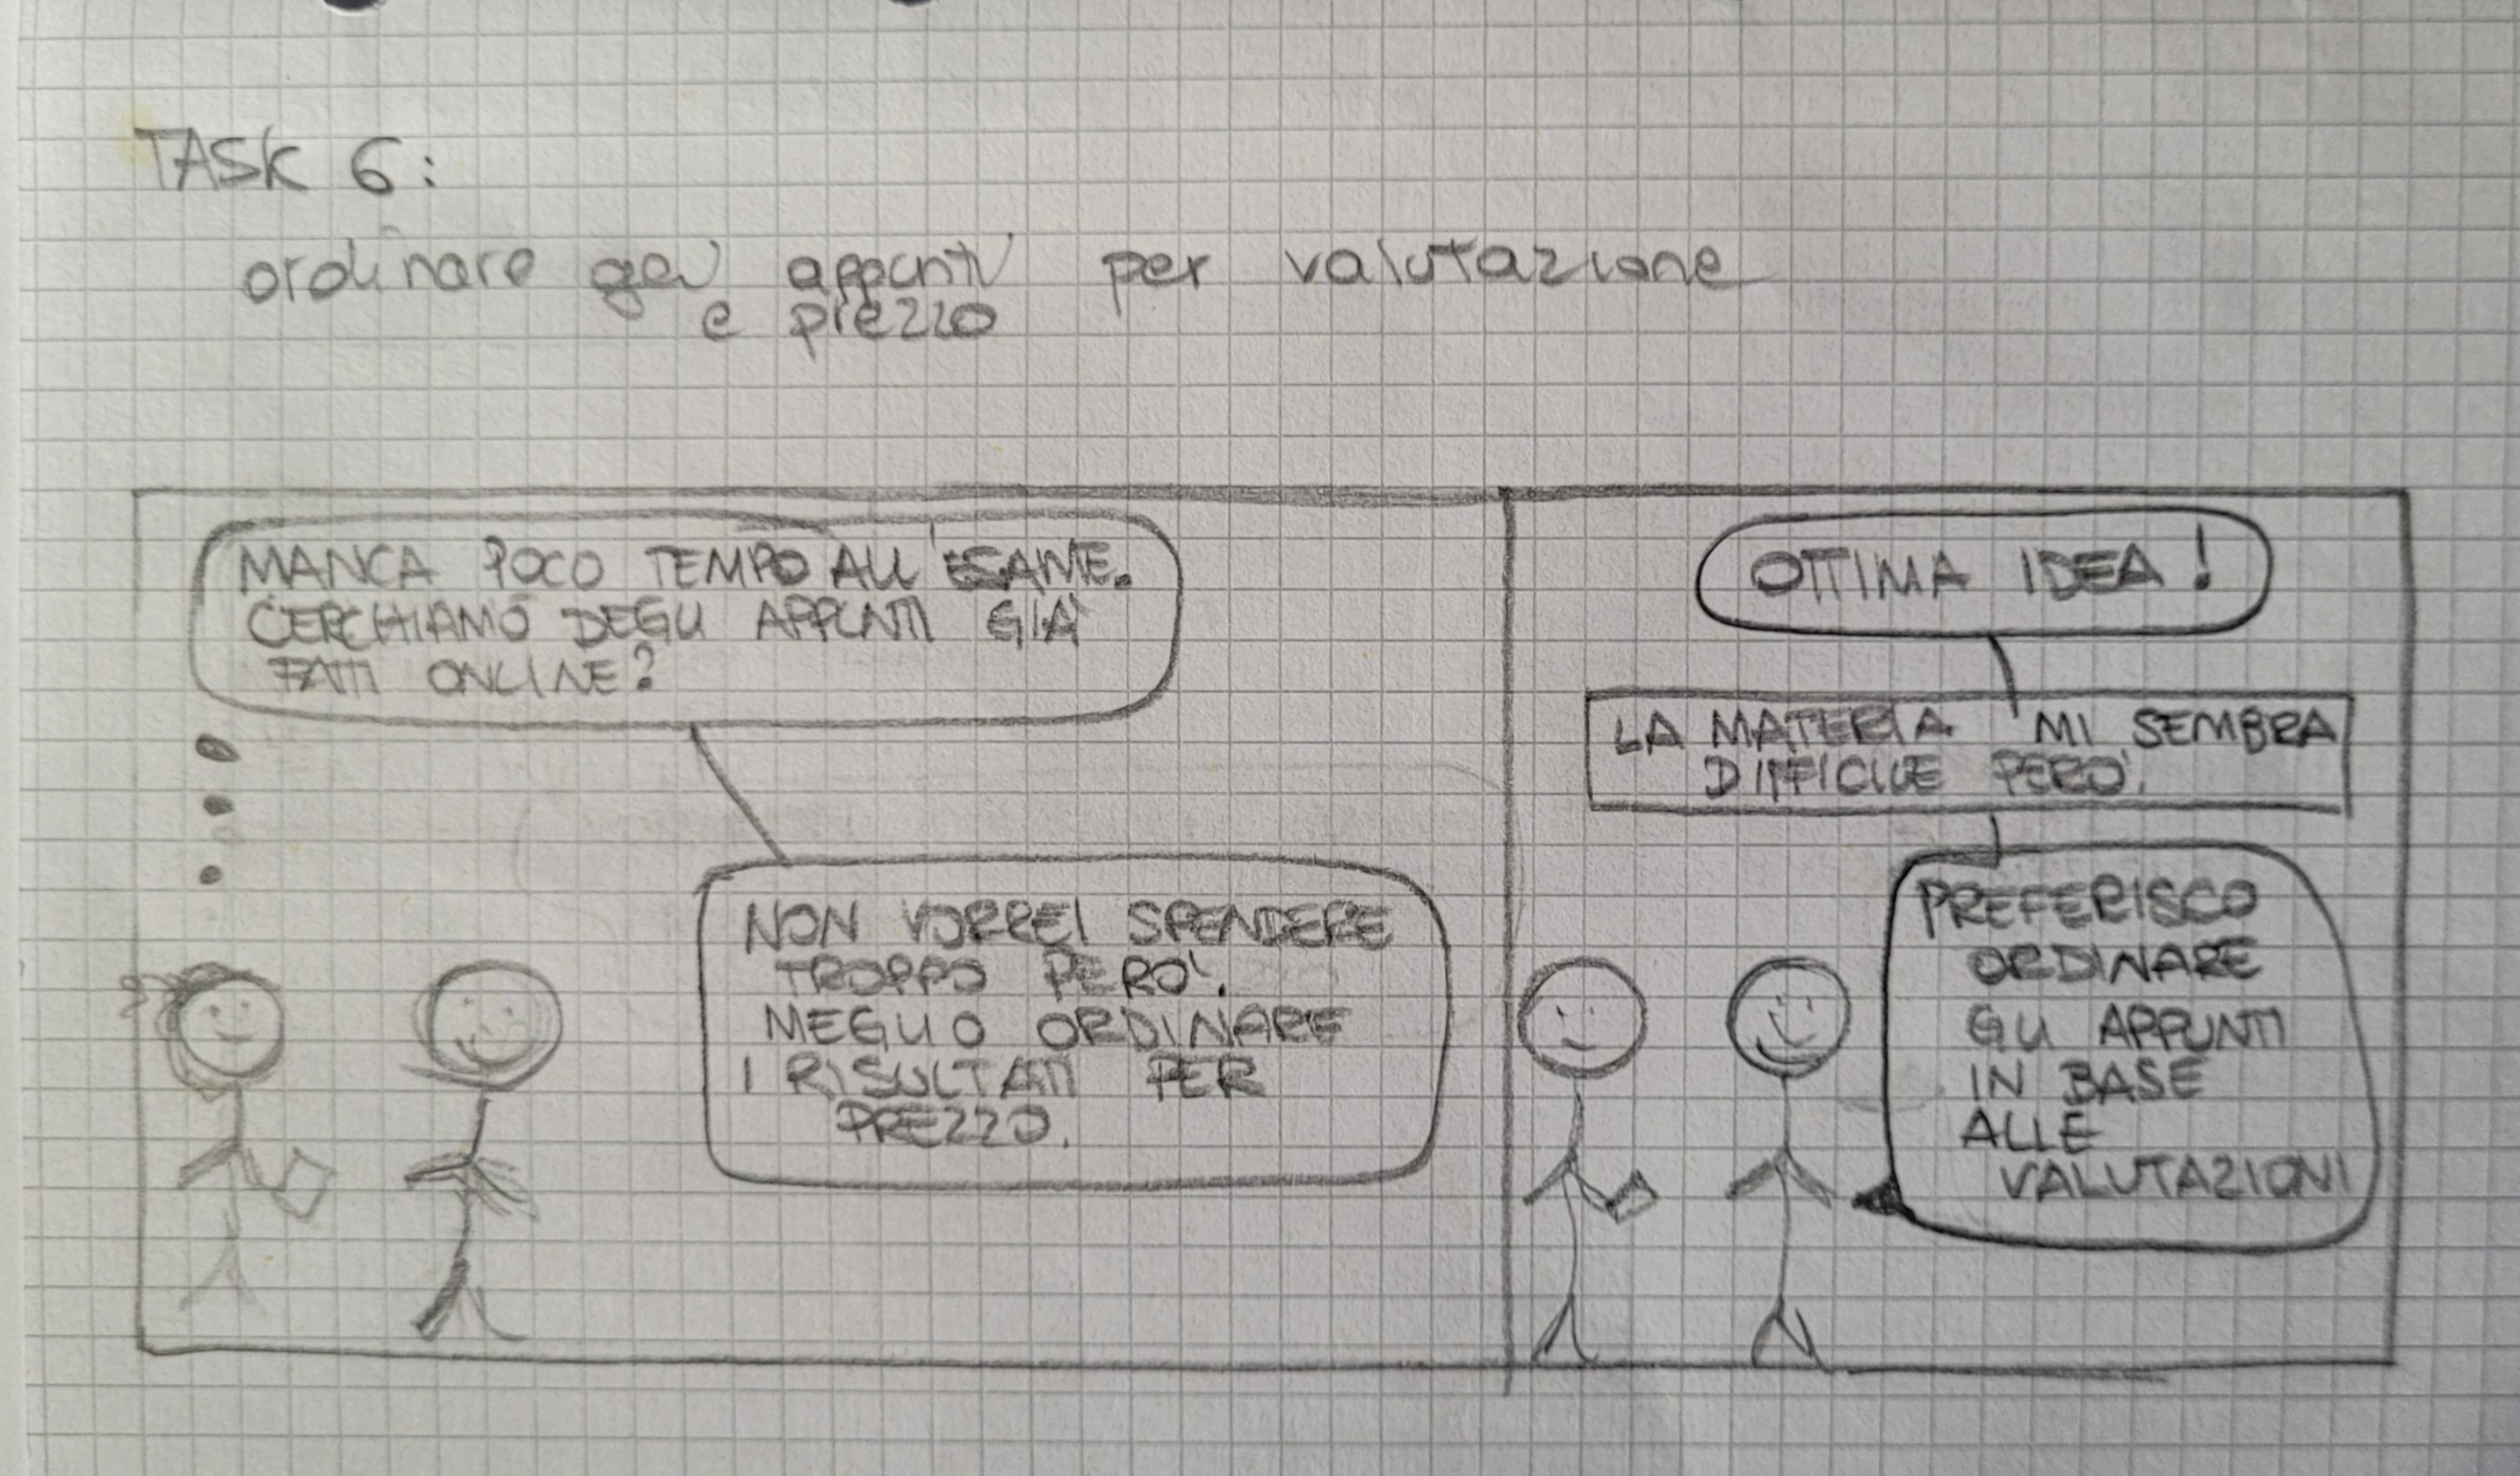 TASK 6:
ordinare gli appunti per valutazione
e prezzo
MANCA POCO TEMPO ALL'ESAME.
CERCHIAMO DEGLI APPUNTI GIÀ
FATTI ONLINE?
NON VORREI SPENDERE
TROPPO PERO'.
MEGLIO ORDINARE
I RISULTATI PER
PREZZO.
OTTIMA IDEA!
LA MATERIA MI SEMBRA
DIFFICILE PERO'.
PREFERISCO
ORDINARE
GLI APPUNTI
IN BASE
ALLE
VALUTAZIONI